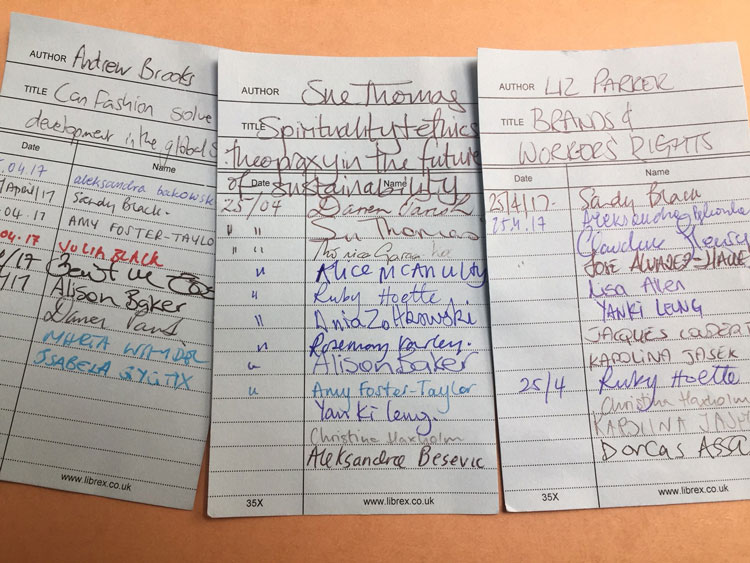 AUTHOR Andrew Brooks
TITLE Can Fashion solve
development in the global S
Date Name
.04.17 aleksandra bakowsk
April/17 Sandy Black.
.04.17 AMY FOSTER-TAYLO
04.17 JULIA BLACK
/17
/17 Alison Baker
Daren
MARTA
ISABELA
www.librex.co.uk
AUTHOR Sue Thomas
TITLE Spirituality + ethics
theopraxy in the future
of sustainability
Date Name
25/04 Daren Parish
" " Su Thomas
" "
" Alice McAnulty
" Ruby Hoette
" Ania Zoltkowski
" Rosemary Varley.
" Alison Baker
" Amy Foster-Taylor
Yanki Leung.
Christina Haxholm
Aleksandra Besevic
35X www.librex.co.uk
AUTHOR LIZ PARKER
TITLE BRANDS &
WORKERS RIGHTS
Date Name
25/4/17- Sandy Black
25.4.17 Aleksandra
Claudine
JOIE ALVAREZ-HALLE
Lisa Allen
YANKI LEUNG
JACQUES
KAROLINA JASEK
25/4 Ruby Hoette
Christina Haxholm
KAROLINA
Dorcas Assa
35X www.librex.co.uk